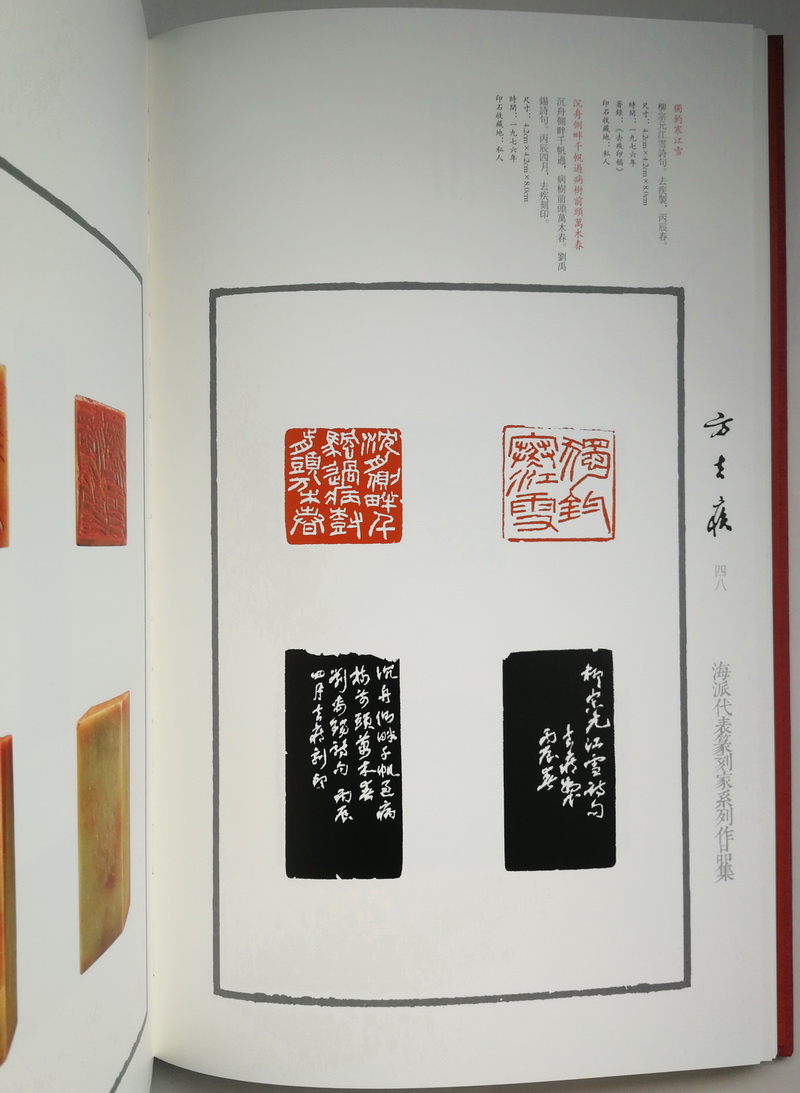 獨釣寒江雪
柳宗元江雪詩句。去疾製,丙辰春。
尺寸:4.2cm×4.2cm×8.0cm
時間:一九七六年
著錄:《去疾印稿》
印石收藏地:私人
沉舟側畔千帆過病樹前頭萬木春
沉舟側畔千帆過,病樹前頭萬木春。劉禹
錫詩句。丙辰四月,去疾刻印。
尺寸:4.2cm×4.2cm×8.0cm
時間:一九七六年
印石收藏地:私人
方去疾
四八
海派代表篆刻家系列作品集
獨釣
寒江
雪
沈舟側畔千
驅過病樹
前頭万木春
柳宗元江雪詩句
去疾製
丙辰春
沉舟側畔千帆過病
樹前頭萬木春
劉禹錫詩句 丙辰
四月去疾刻印